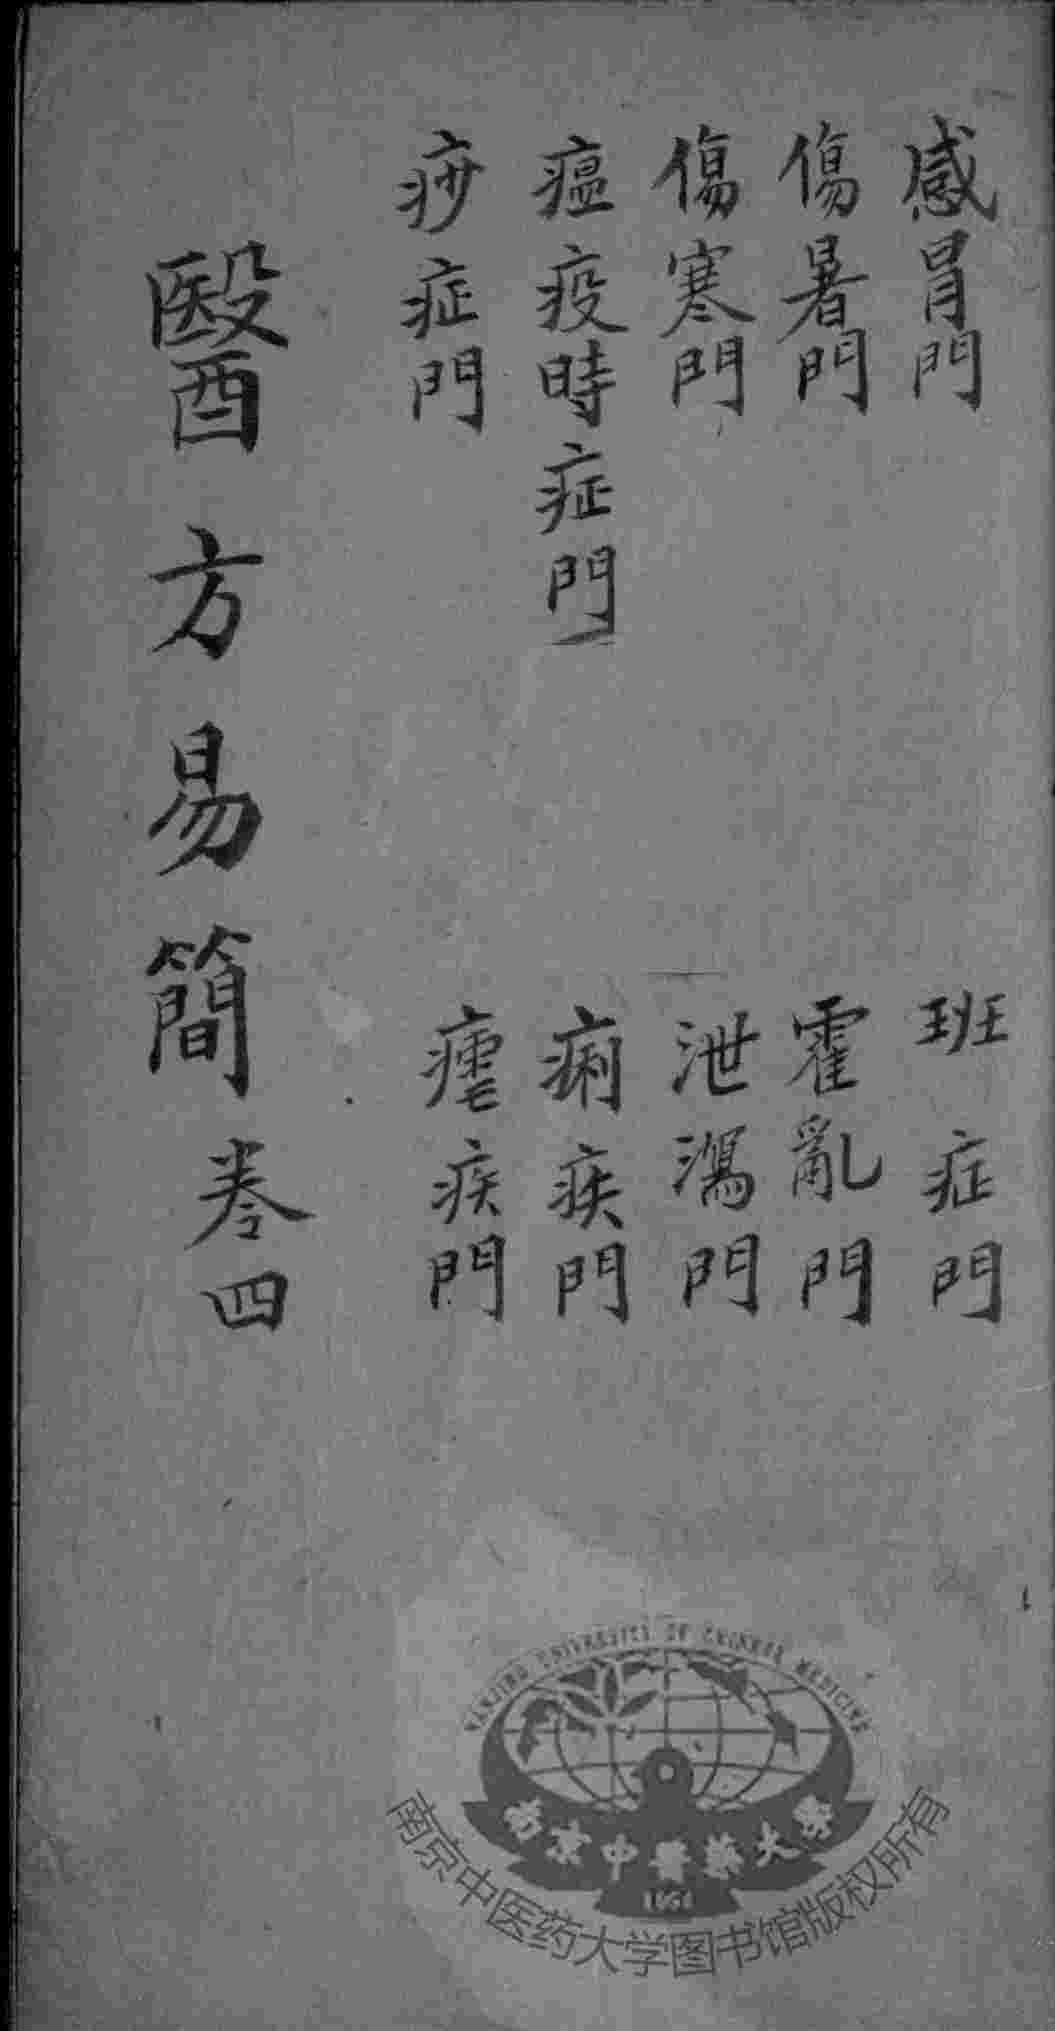 感冒門
傷暑門
傷寒門
瘟疫時症門
痧症門
班症門
霍亂門
泄瀉門
痢疾門
瘧疾門
醫方易簡卷四
NANJING UNIVERSITY OF CHINESE MEDICINE
南京中醫藥大學
1954
南京中医药大学图书馆版权所有